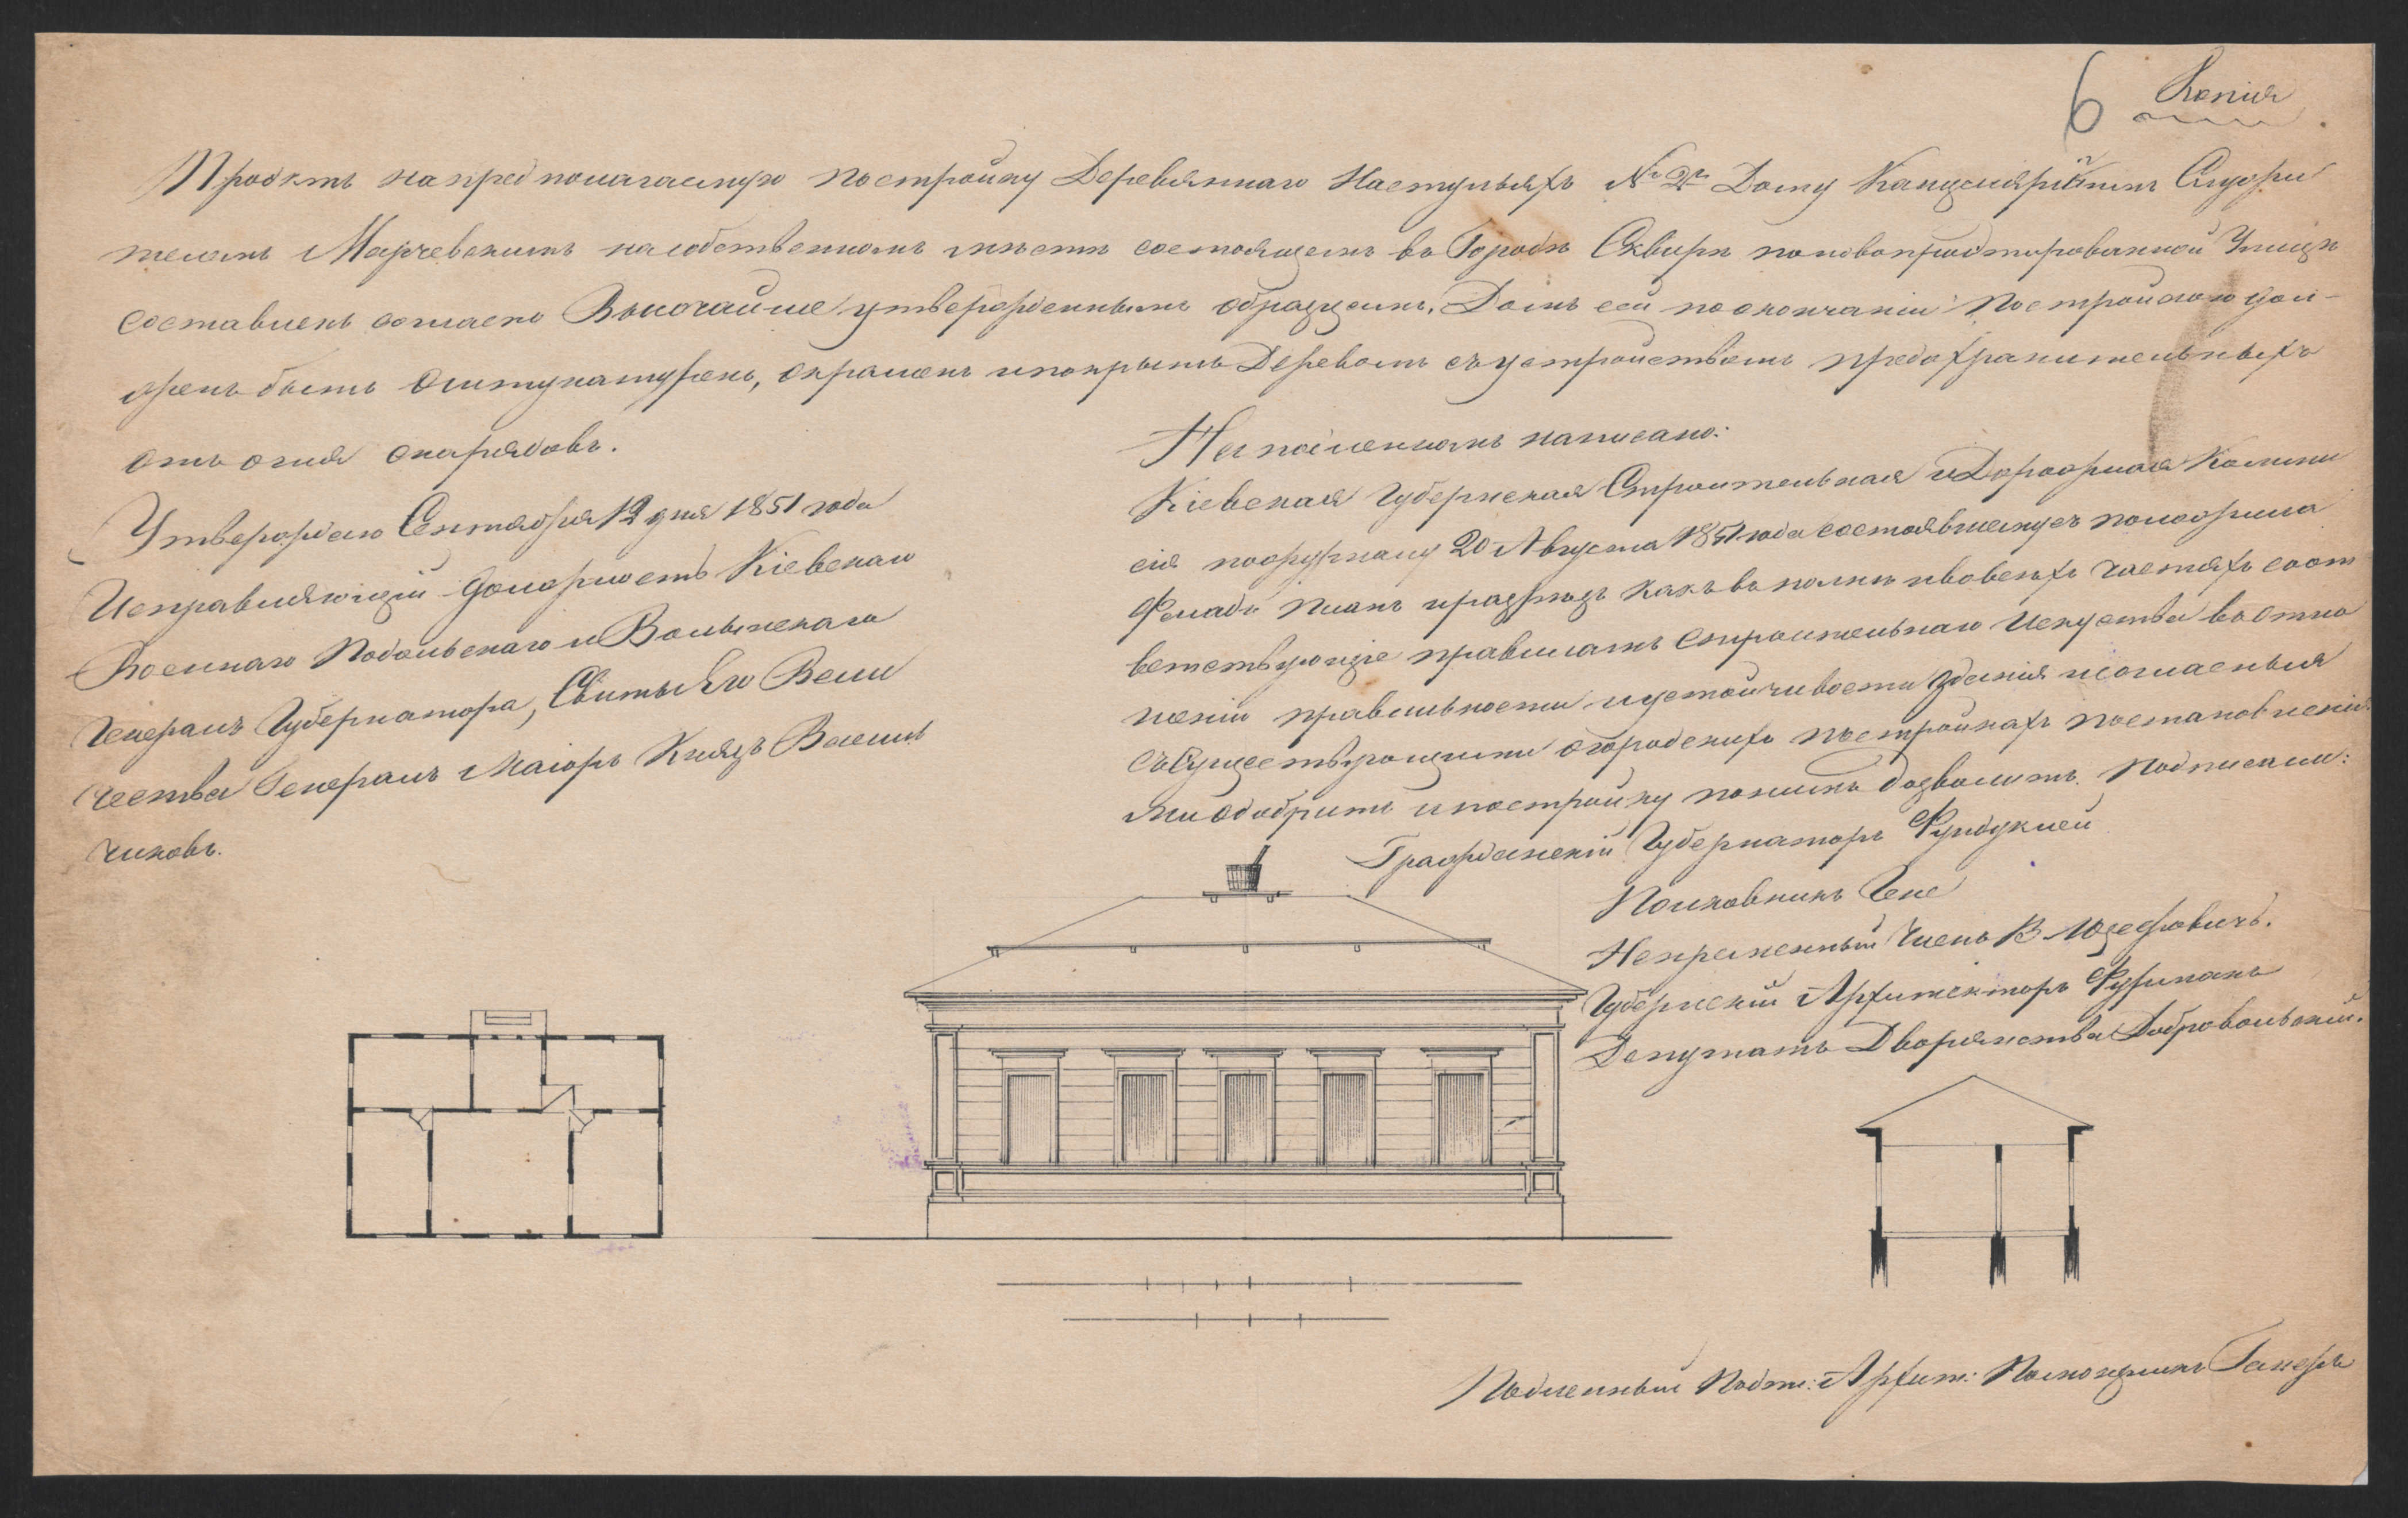 6 Копія
Проэктъ на предполагаемую постройку Деревяннаго На стульяхъ № 2й Дому Канцелярскимъ Служи
телемъ Марчевскимъ на собственномъ мѣстѣ состоящемъ въ Городѣ Сквирѣ по новопроэктированной Улицѣ
составленъ согласно Высочайше утвержденнымъ образцамъ. Домъ сей по окончаніи постройкою дол-
женъ быть оштукатуренъ, окрашенъ и покрытъ Деревомъ съ устройствомъ предохранительныхъ
отъ огня снарядовъ.
Утверждаю Сентября 12 дня 1851 года
Исправляющій должность Кіевскаго
Военнаго Подольскаго и Волынскаго
Генералъ Губернатора, Свиты Его Вели
чества Генералъ Маіоръ Князь Василь
чиковъ.
На подлинномъ написано:
Кіевская Губернская Строительная и Дорожная Комми
сія по журналу 20 Августа 1851 года состоявшемуся положила
Фасадъ планъ и разрѣзъ какъ въ полнѣ и во всѣхъ частяхъ соот
вѣтствующіе правиламъ Строительнаго Искуства въ отно
шеніи правильности и устойчивости зданія и согласныя
съ существующими о городскихъ постройкахъ постановленія
ми одобрить и постройку по нимъ дозволить. Подписали:
Гражданскій Губернаторъ Фундуклей
Полковникъ Гене
Непремѣнный Членъ В. Юзефовичъ.
Губернскій Архитекторъ
Депутатъ Дворянства Добровольскій.
Подленный Подп: Архит: Помощникъ